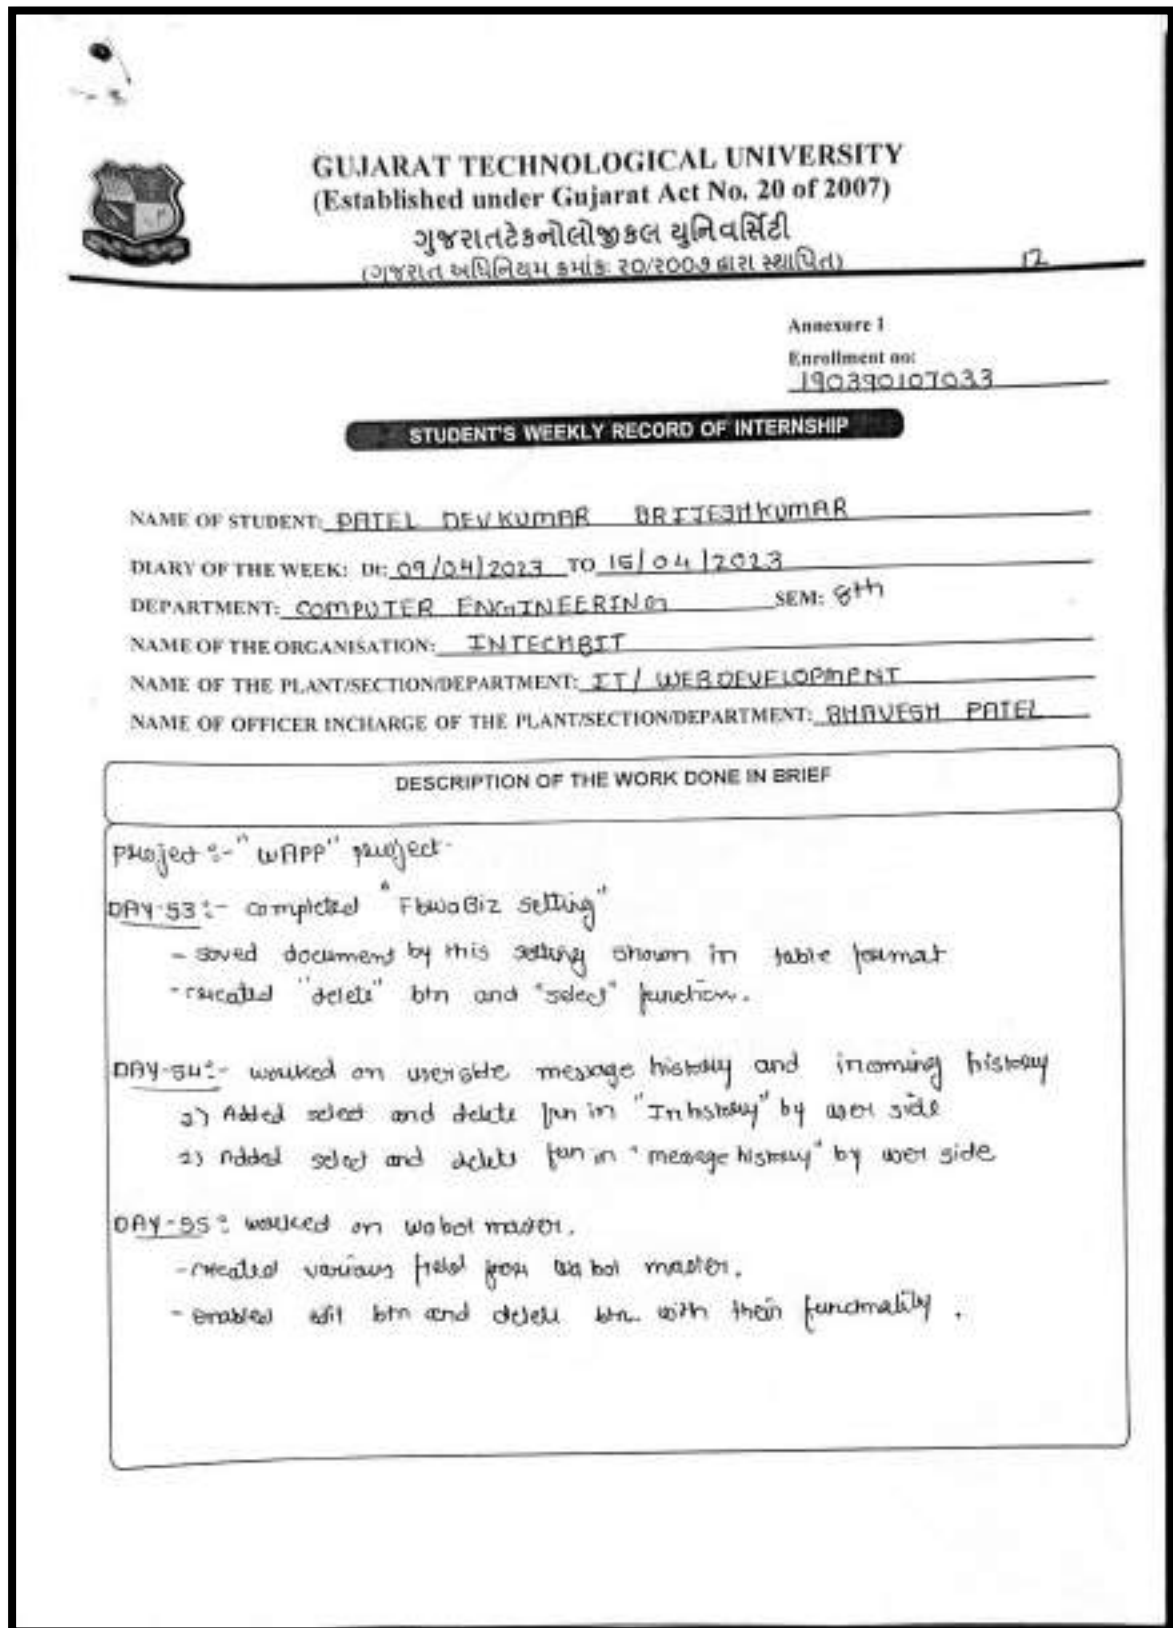 GUJARAT TECHNOLOGICAL UNIVERSITY
(Established under Gujarat Act No. 20 of 2007)
ગુજરાતટેકનોલોજીકલ યુનિવર્સિટી
(ગુજરાત અધિનિયમ ક્રમાંકઃ ૨૦/૨૦૦૭ દ્વારા સ્થાપિત)
12
Annexure 1
Enrollment no:
190390107033
STUDENT'S WEEKLY RECORD OF INTERNSHIP
NAME OF STUDENT: PATEL DEVKUMAR BRIJESHKUMAR
DIARY OF THE WEEK: Dt: 09/04/2023 TO 15/04/2023
DEPARTMENT: COMPUTER ENGINEERING SEM: 8th
NAME OF THE ORGANISATION: INTECHBIT
NAME OF THE PLANT/SECTION/DEPARTMENT: IT/ WEBDEVELOPMENT
NAME OF OFFICER INCHARGE OF THE PLANT/SECTION/DEPARTMENT: BHAVESH PATEL
DESCRIPTION OF THE WORK DONE IN BRIEF
Project :- "WAPP" project-
DAY-53 :- completed "FbwaBiz Setting"
- saved document by this setting shown in table format
- created "delete" btn and "select" function.
DAY-54 :- worked on userside message history and incoming history
1) Added select and delete fun in "Inhistory" by user side
2) Added select and delete fun in "message history" by user side
DAY-55 : worked on wabot master.
- created various field for wa bot master.
- enabled edit btn and delete btn with their functionality .